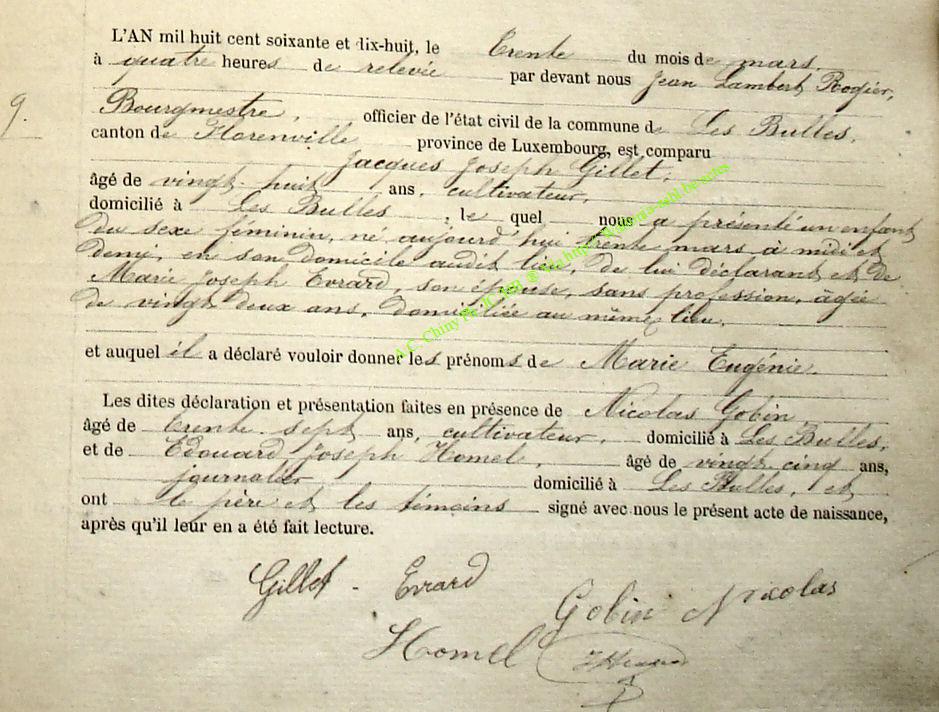 L'AN mil huit cent soixante et dix-huit, le Trente du mois de mars
à quatre heures de relevée par devant nous Jean Lambert Rogier,
9.
Bourgmestre, officier de l'état civil de la commune de Les Bulles,
canton de Florenville province de Luxembourg, est comparu
Jacques Joseph Gillet,
âgé de vingt huit ans, cultivateur,
domicilié à Les Bulles, le quel nous a présenté un enfant
du sexe féminin, né aujourd'hui trente mars à midi et
demi, en son domicile audit lieu, de lui déclarant et de
Marie Joseph Evrard, son épouse, sans profession, âgée
de vingt deux ans, domiciliée au même lieu,
et auquel il a déclaré vouloir donner les prénoms de Marie Eugénie.
Les dites déclaration et présentation faites en présence de Nicolas Gobin,
âgé de trente sept ans, cultivateur, domicilié à Les Bulles,
et de Edouard Joseph Homel, âgé de vingt cinq ans,
journalier domicilié à Les Bulles, et
ont le père et les témoins signé avec nous le présent acte de naissance,
après qu'il leur en a été fait lecture.
Gillet - Evrard
Gobin Nicolas
Homel